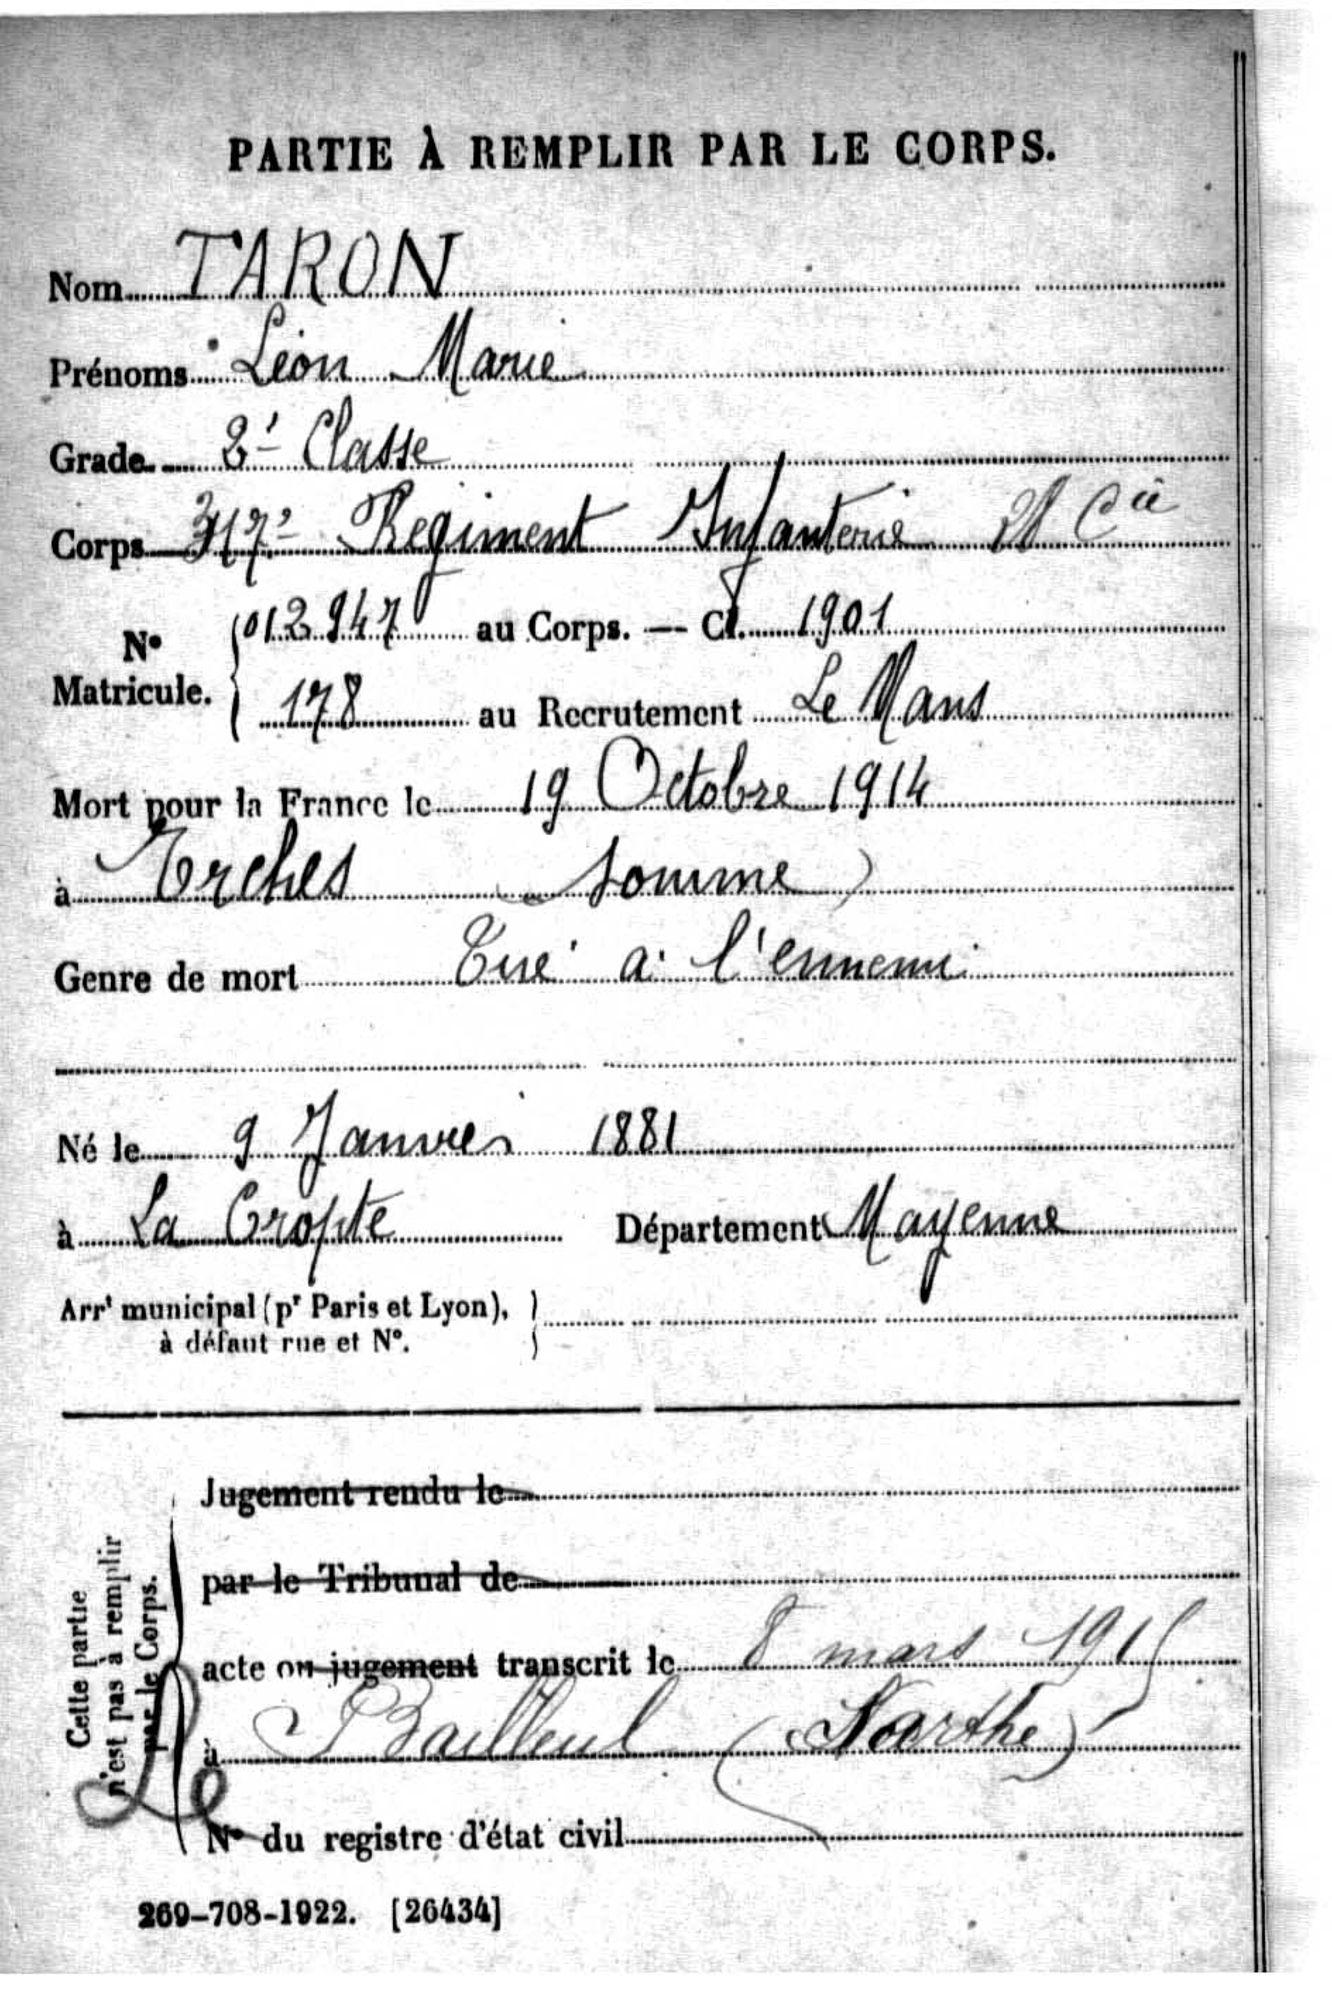 PARTIE À REMPLIR PAR LE CORPS.
Nom TARON
Prénoms Léon Marie
Grade 2e Classe
Corps 317e Régiment Infanterie Cie
No Matricule. { 012947 au Corps. — Cl. 1901
178 au Recrutement Le Mans
Mort pour la France le 19 Octobre 1914
à Erches (Somme)
Genre de mort Tué à l'ennemi
Né le 9 Janvier 1881
à La Cropte Département Mayenne
Arrt municipal (pr Paris et Lyon), }
à défaut rue et No.
Cette partie
n'est pas à remplir
par le Corps.
Jugement rendu le
par le Tribunal de
acte ou jugement transcrit le 8 mars 1915
à Bailleul (Sarthe)
No du registre d'état civil
269-708-1922. [26434]